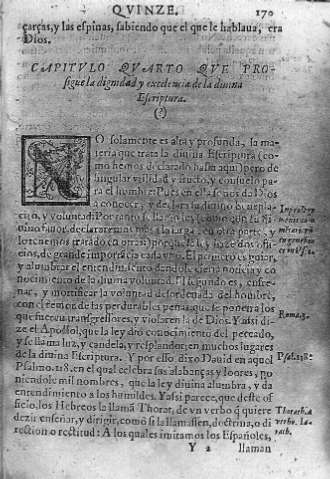 QVINZE. 170
çarças, y las espinas, sabiendo que el que le hablaua, era
Dios.
CAPITVLO QVARTO QVE PRO-
sigue la dignidad y excelencia de la diuina
Escriptura.
(?)
NO solamente es alta y profunda, la ma-
teria que trata la diuina Escriptura (co-
mo hemos declarado hasta aqui) pero de
singular vtilidad y fructo, y consuelo para
el hombre: Pues en ella se nos da Dios
a conocer, y declara
y voluntad: Por tanto llama ley
declararemos mas a la larga, en otra parte, y
lo tenemos tratado porque la ley haze dos offi-
cios, de grande importancia cada vno. El primero es guiar,
y alumbrar el entendimiento dandole cierta noticia y co-
nocimiento de la diuina voluntad. El segundo es, enfre-
nar, y mortificar la voluntad desordenada del hombre,
con temores de las perdurables penas que se ponen a los
que fueren transgressores, y rebeldes a la ley de Dios. Y assi di-
ze el Apostol, que la ley dio conocimiento del peccado, Roma.3.
y se llama luz, y candela, y resplandor, en muchos lugares
de la diuina Escriptura. Y por esso dixo Dauid en aquel
Psalmo.118. en el qual celebra sus alabanças y loores, po- Psal.118.
niendole mil nombres, que la ley diuina alumbra, y da
entendimiento a los humildes. Y assi parece, que deste of-
ficio, los Hebreos la llamã Thorat, de vn verbo q̃ quiere Thorath.à
dezir enseñar, y dirigir, como si la llamassen, doctrina, o di verbo
rection o rectitud: A los quales imitamos los Españoles,
Y 2 llaman